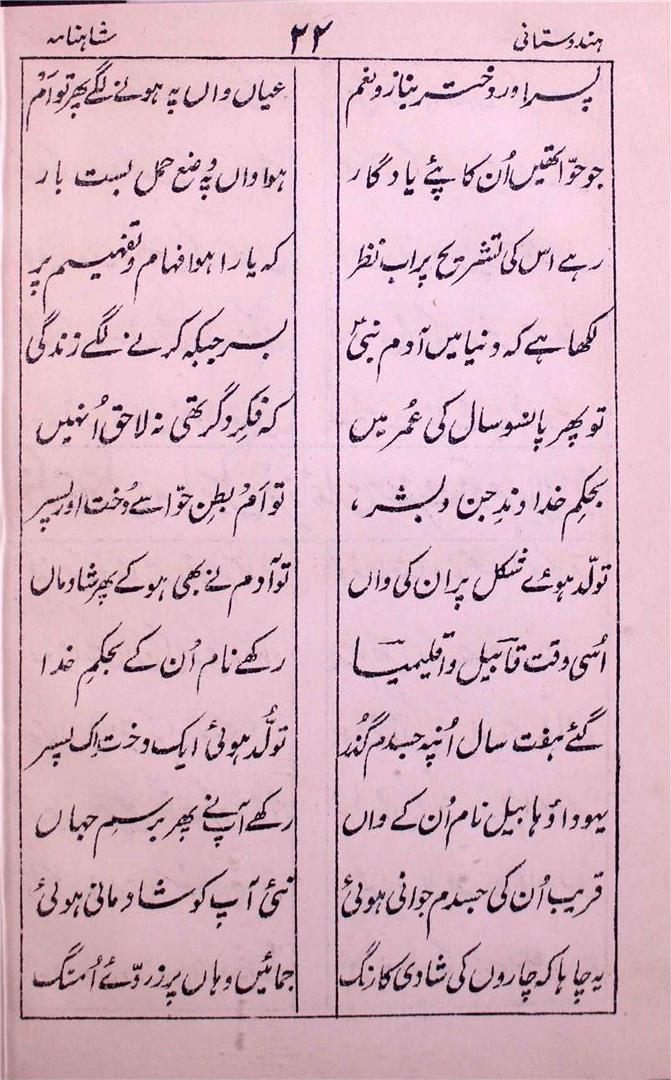 ہندوستانی ۲۲ شاہنامہ
پسر اور دختر بناز و نعم عیاں واں پہ ہونے لگے پھر توأم
جو حوّا تھیں اُن کا پئے یادگار ہوا واں پہ وضع حمل بست بار
رہے اس کی تشریح پر اب نظر کہ یارا ہوا فہام و تفہیم پر
لکھا ہے کہ دنیا میں آدم نبیؑ بسر جبکہ کرنے لگے زندگی
تو پھر پانسو سال کی عُمر میں کہ فکرِ دگر تھی نہ لاحق اُنہیں
بحکمِ خداوندِ جن و بشر ، توأم بطنِ حوّا سے دُخت اور پسر
تولّد ہوئے شکل پر ان کی واں تو آدم نے بھی ہو کے پھر شادماں
اُسی وقت قابیل و اقلیمیا رکھے نام اُن کے بحکمِ خدا
گئے ہفت سال اُنپہ جسدم گذر تولُّد ہوئی ایک دخت اِک پسر
یہودا و ہابیل نام اُن کے واں رکھے آپ نے پھر برسمِ جہاں
قریب اُن کی جسدم جوانی ہوئی نئی آپ کو شادمانی ہوئی
یہ چاہا کہ چاروں کی شادی کا رنگ جمائیں وہاں پر ز روئے اُمنگ